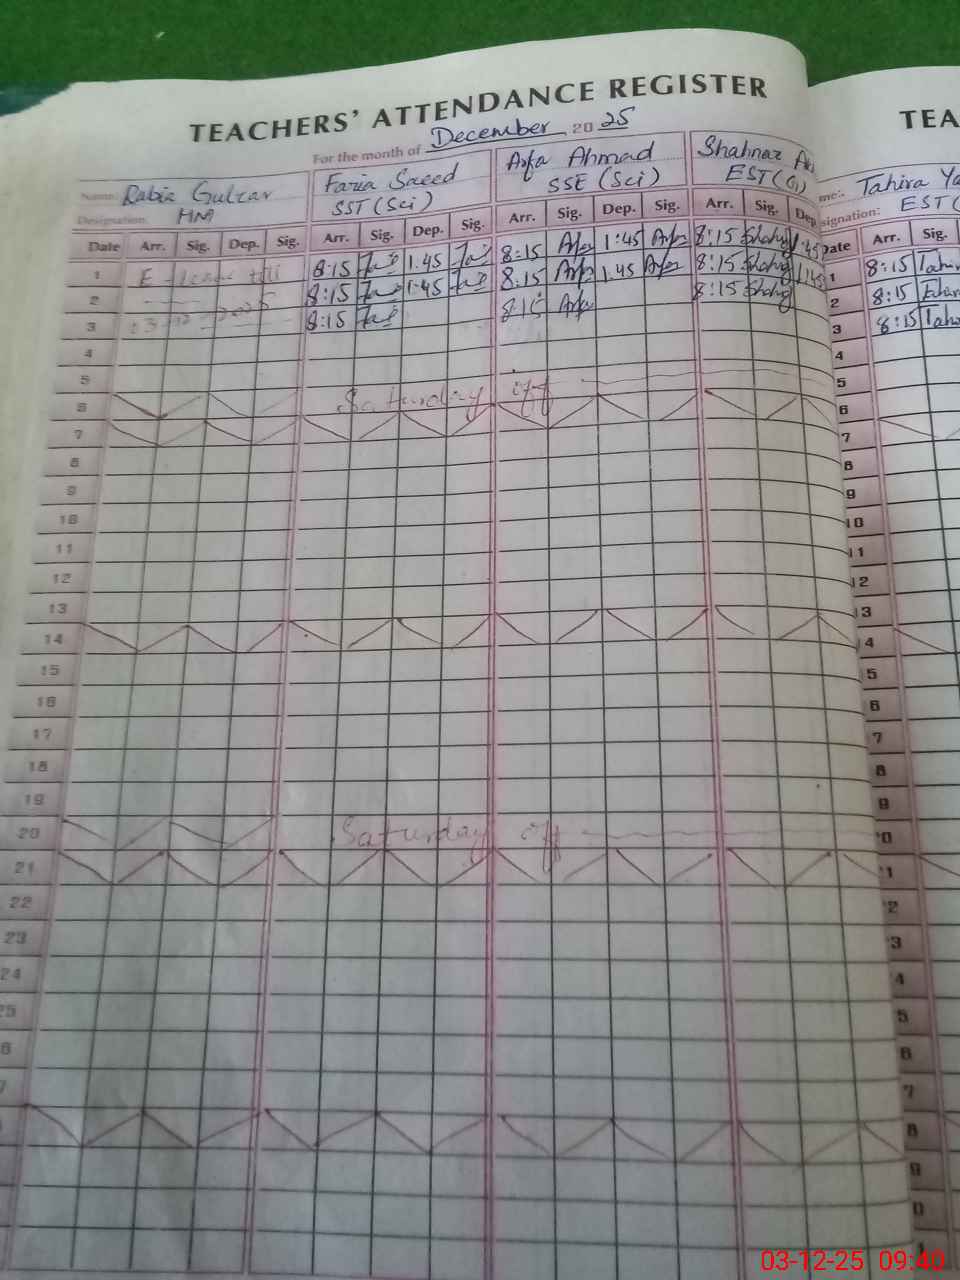 TEACHERS' ATTENDANCE REGISTER
For the month of December 2025
Name: Rabia Gulzar
Designation: HM
Faria Saeed
SST (Sci)
Arfa Ahmad
SSE (Sci)
Shahnaz
EST (
Date Arr. Sig. Dep. Sig. Arr. Sig. Dep. Sig. Arr. Sig. Dep. Sig. Arr. Sig. Dep
1 E-leave till 8:15 1:45 8:15 Arfa 1:45 Arfa 8:15 1:45
2 8:15 1:45 8:15 Arfa 1:45 Arfa 8:15 1:45
3 03-12-2025 8:15 8:15 Arfa 8:15
4
5
6 Saturday off
7
8
9
10
11
12
13
14
15
16
17
18
19
20 Saturday off
21
22
23
24
25
6
7
TEA
me: Tahira Ya
signation: EST (
Date Arr. Sig.
1 8:15 Tahir
2 8:15 Tahir
3 8:15 Tah
4
5
6
7
8
9
10
11
12
13
4
5
6
7
8
9
0
1
2
3
4
5
6
7
8
9
0
03-12-25 09:40